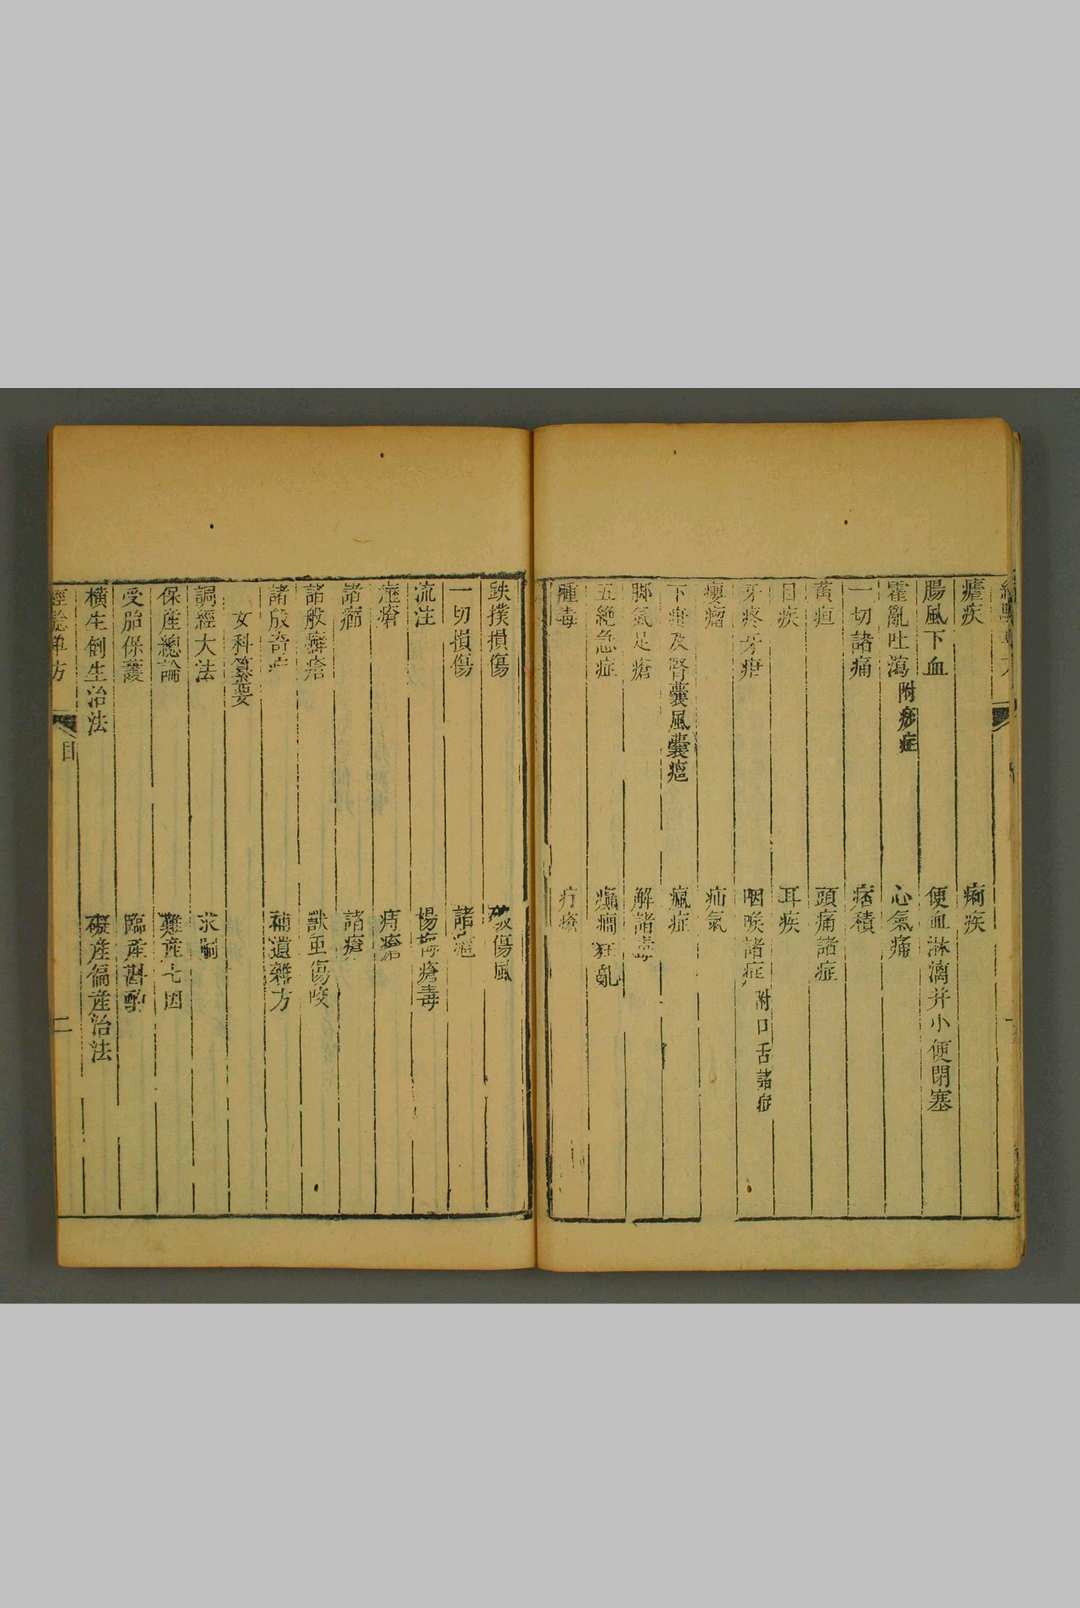 瘧疾　痢疾
腸風下血　便血淋漓并小便閉塞
霍亂吐瀉 附痧症　心氣痛
一切諸痛　痞積
黃疸　頭痛諸症
目疾　耳疾
牙疼牙疳　咽喉諸症 附口舌諸症
癭瘤　疝氣
下疳及腎囊風囊癰　瘋症
脚氣足瘡　解諸毒
五絶急症　癲癇狂亂
腫毒　疔瘡
跌撲損傷　破傷風
一切損傷　諸瘡
流注　楊梅瘡毒
瘰癧　痔瘡
諸癤　諸瘡
諸般癬瘡　獸虫傷咬
諸般奇症　補遺雜方
女科纂要
調經大法　求嗣
保產總論　難產七因
受胎保護　臨產斟酌
橫生倒生治法　礙產偏產治法
經驗單方　目　二